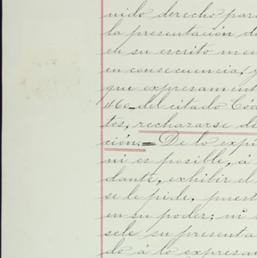 nido derecho para
la presentación de
ch su escrito men
en consecuencia, y
que expresament
460 del citado Cód
tos, rechazarse de
ción.= De lo expu
ni es posible, á
dante, exhibir el
se le pide, puesto
en su poder; ni
sele su presenta
do á lo expresam